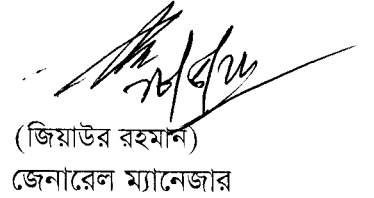 (জিয়াউর রহমান)
জেনারেল ম্যানেজার